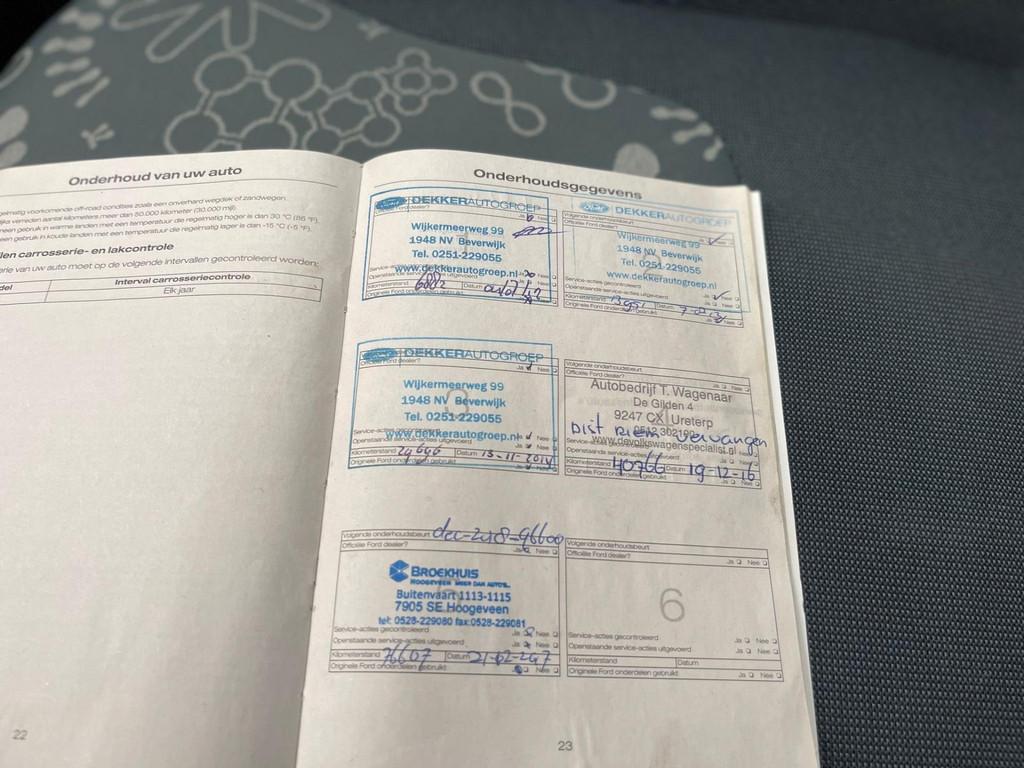 Onderhoud van uw auto
elmatig voorkomende off-road condities zoals een onverhard wegdek of zandwegen.
meer dan 50.000 kilometer (30.000 mijl).
een gebruik in warme landen met een temperatuur die regelmatig hoger is dan 30 °C (86 °F).
een gebruik in koude landen met een temperatuur die regelmatig lager is dan -15 °C (-5 °F).
len carrosserie- en lakcontrole
erie van uw auto moet op de volgende intervallen gecontroleerd worden:
del
Interval carrosseriecontrole
Elk jaar
22
Onderhoudsgegevens
Ford DEKKERAUTOGROEP
Officiële Ford dealer?
Ja Nee
Wijkermeerweg 99
1948 NV Beverwijk
Tel. 0251-229055
www.dekkerautogroep.nl
Openstaande service-acties uitgevoerd
Kilometerstand Datum
Originele Ford onderdelen gebruikt
Ford DEKKERAUTOGROEP
Volgende onderhoudsbeurt
Officiële Ford dealer?
Wijkermeerweg 99
1948 NV Beverwijk
Tel. 0251-229055
www.dekkerautogroep.nl
Service-acties gecontroleerd
Openstaande service-acties uitgevoerd
Ja Nee
Kilometerstand Datum
Originele Ford onderdelen gebruikt
Ja Nee
Ford DEKKERAUTOGROEP
Officiële Ford dealer?
Ja Nee
3
Wijkermeerweg 99
1948 NV Beverwijk
Tel. 0251-229055
www.dekkerautogroep.nl
Nee
Openstaande service-acties uitgevoerd
Ja Nee
Kilometerstand 29646 Datum 13-11-2014
Originele Ford onderdelen gebruikt
Volgende onderhoudsbeurt
Officiële Ford dealer?
Ja Nee
Autobedrijf T. Wagenaar
De Gilden 4
9247 CX Ureterp
0512 302190
Dist Riem vervangen
www.devolkswagenspecialist.nl
Openstaande service-acties uitgevoerd
Ja Nee
Kilometerstand 40766 Datum 19-12-16
Originele Ford onderdelen gebruikt
Ja Nee
Volgende onderhoudsbeurt
Officiële Ford dealer?
Ja Nee
BROEKHUIS
HOOGEVEEN MEER DAN AUTO'S..
Buitenvaart 1113-1115
7905 SE Hoogeveen
tel: 0528-229080 fax:0528-229081
Service-acties gecontroleerd
Ja Nee
Openstaande service-acties uitgevoerd
Ja Nee
Kilometerstand 76607 Datum
Originele Ford onderdelen gebruikt
Nee
Volgende onderhoudsbeurt
Officiële Ford dealer?
Ja Nee
6
Service-acties gecontroleerd
Ja Nee
Openstaande service-acties uitgevoerd
Ja Nee
Kilometerstand Datum
Originele Ford onderdelen gebruikt
Ja Nee
23